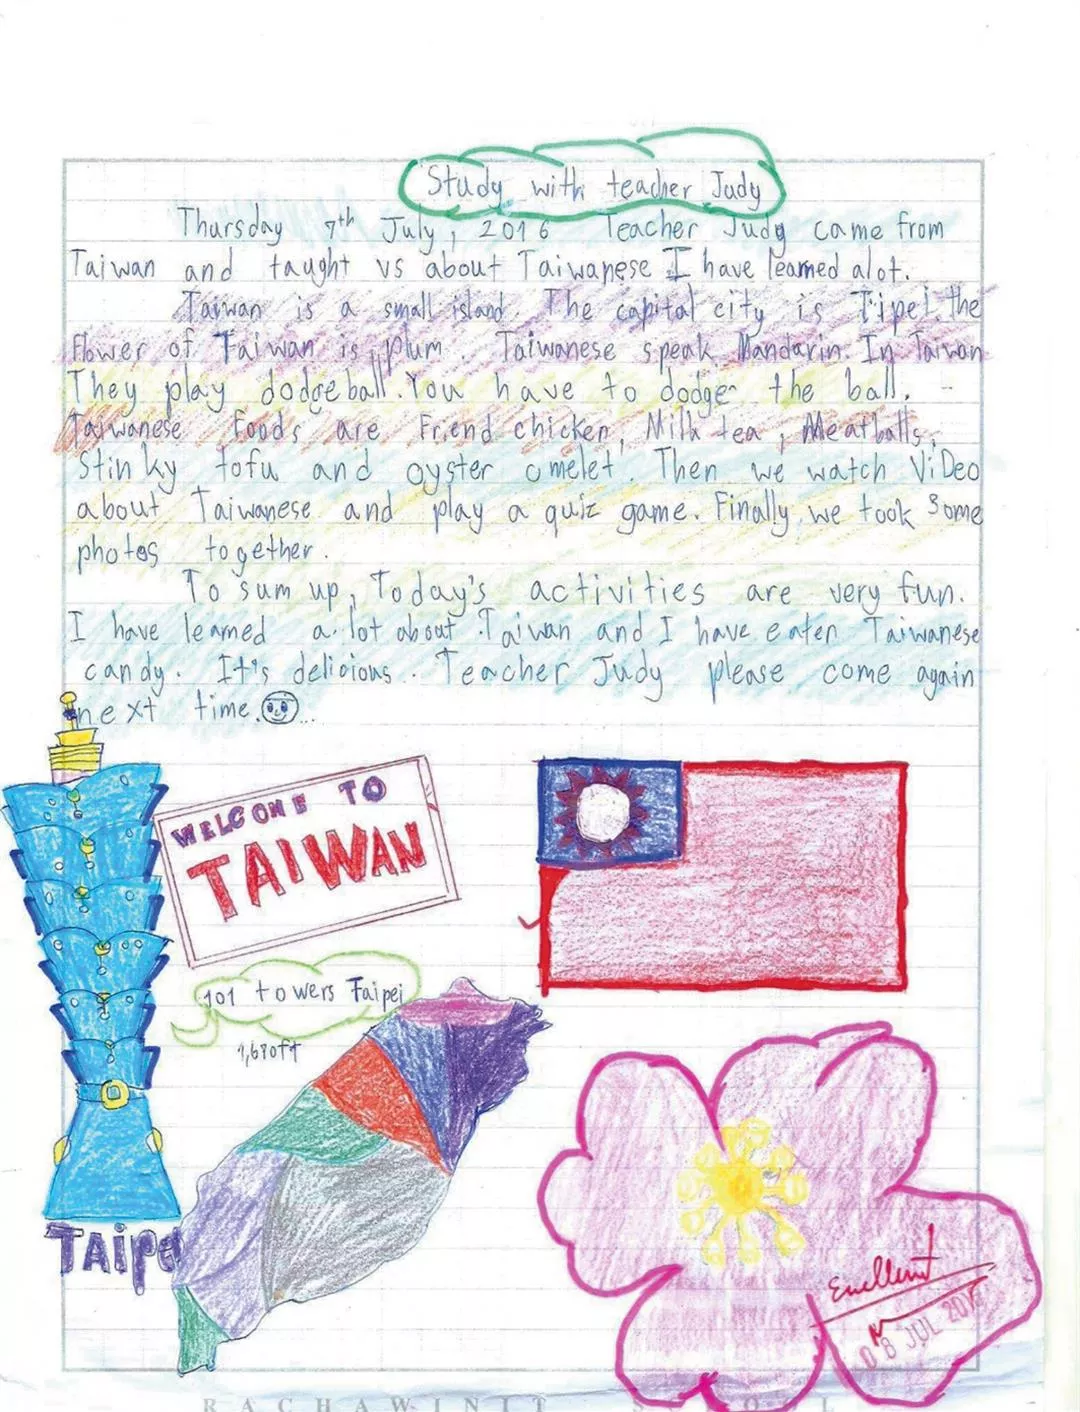 Study with teacher Judy
Thursday 7th July, 2016 Teacher Judy came from
Taiwan and taught us about Taiwanese I have learned alot.
Taiwan is a small island. The capital city is Tipei, the
flower of Taiwan is plum. Taiwanese speak Mandarin. In Taiwan
They play dodgeball. You have to dodge the ball.
Taiwanese foods are Friend chicken, Milk tea, Meatballs,
Stinky tofu and oyster omelet. Then we watch ViDeo
about Taiwanese and play a quiz game. Finally, we took some
photos together.
To sum up, Today's activities are very fun.
I have learned a lot about Taiwan and I have eaten Taiwanese
candy. It's delicious. Teacher Judy please come again
next time.
WELCOME TO
TAIWAN
101 towers Taipei
1,670ft
TAipe
Excellent
08 JUL 201
RACHAWINIT SCHOOL